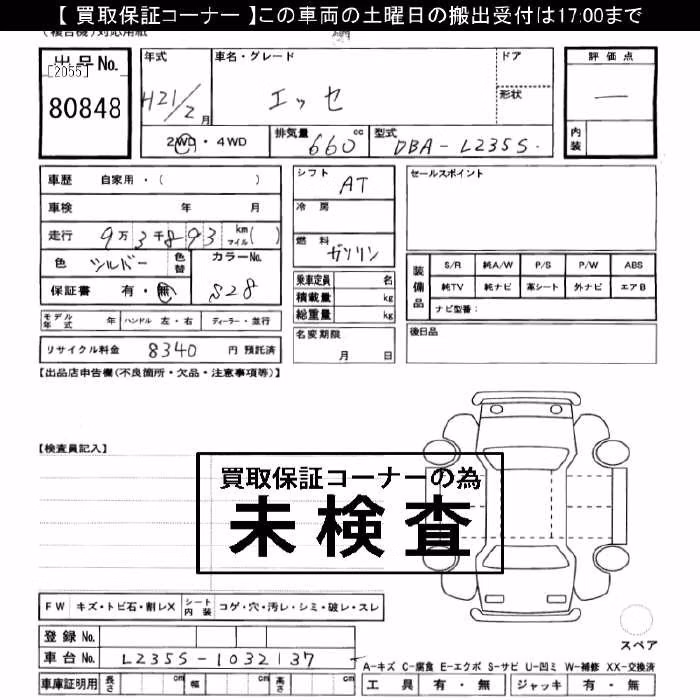 【 買取保証コーナー 】この車両の土曜日の搬出受付は17:00まで
出品No.
[2055]
80848
年式
H21/2月
車名・グレード
エッセ
ドア
形状
評価点
―
内装
2WD・4WD
排気量
660cc
型式
DBA-L235S
車歴 自家用・( )
車検 年 月
走行 9万3千893 km マイル( )
色 シルバー 色替
カラーNo.
S28
保証書 有・無
シフト
AT
冷房
燃料
ガソリン
乗車定員 名
積載量 kg
総重量 kg
名変期限
月 日
セールスポイント
装備品
S/R 純A/W P/S P/W ABS
純TV 純ナビ 革シート 外ナビ エアB
ナビ型番：
後日品
モデル年式 年 ハンドル 左・右 ディーラー・並行
リサイクル料金 8340 円 預託済
【出品店申告欄(不良箇所・欠品・注意事項等)】
【検査員記入】
買取保証コーナーの為
未検査
FW キズ・トビ石・割レX シート内装 コゲ・穴・汚レ・シミ・破レ・スレ
登録No.
車台No. L235S-1032137
車庫証明用 長さ cm 幅 cm 高さ cm
スペア
A-キズ C-腐食 E-エクボ S-サビ U-凹ミ W-補修 XX-交換済
工具 有・無 ジャッキ 有・無